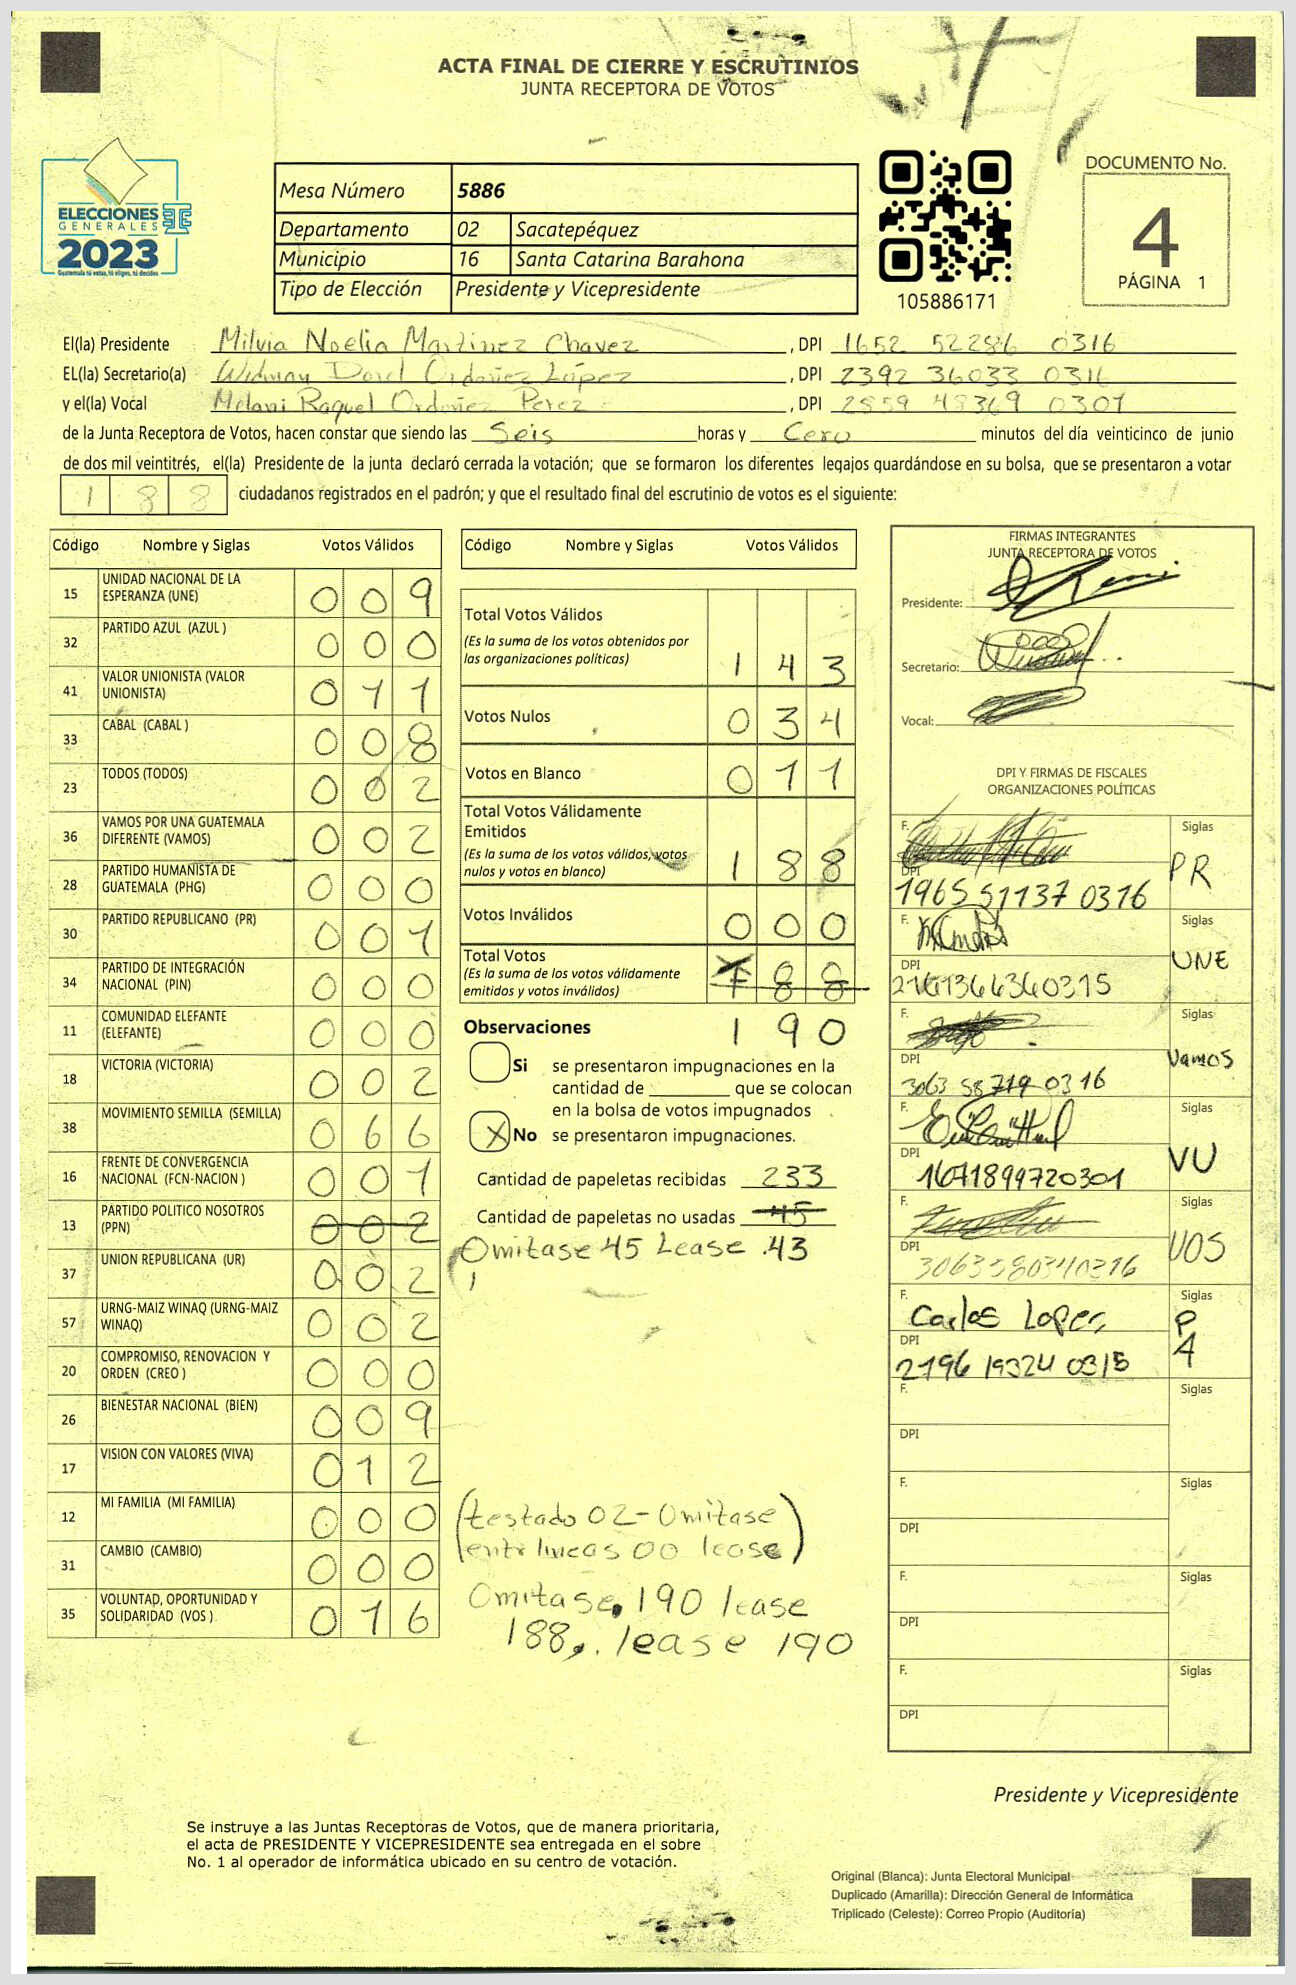 ACTA FINAL DE CIERRE Y ESCRUTINIOS
JUNTA RECEPTORA DE VOTOS
ELECCIONES
GENERALES
2023
Guatemala tú votas, tú eliges, tú decides
Mesa Número 5886
Departamento 02 Sacatepéquez
Municipio 16 Santa Catarina Barahona
Tipo de Elección Presidente y Vicepresidente
105886171
DOCUMENTO No.
4
PÁGINA 1
El(la) Presidente Milvia Noelia Martinez Chavez , DPI 1652 52286 0316
EL(la) Secretario(a) Widman Dorel Ordoñez López , DPI 2392 36033 0316
y el(la) Vocal Melani Raquel Ordoñez Perez , DPI 2859 48369 0307
de la Junta Receptora de Votos, hacen constar que siendo las Seis horas y Cero minutos del día veinticinco de junio
de dos mil veintitrés, el(la) Presidente de la junta declaró cerrada la votación; que se formaron los diferentes legajos guardándose en su bolsa, que se presentaron a votar
188 ciudadanos registrados en el padrón; y que el resultado final del escrutinio de votos es el siguiente:
Código Nombre y Siglas Votos Válidos
15 UNIDAD NACIONAL DE LA ESPERANZA (UNE) 009
32 PARTIDO AZUL (AZUL ) 000
41 VALOR UNIONISTA (VALOR UNIONISTA) 011
33 CABAL (CABAL ) 008
23 TODOS (TODOS) 002
36 VAMOS POR UNA GUATEMALA DIFERENTE (VAMOS) 002
28 PARTIDO HUMANISTA DE GUATEMALA (PHG) 000
30 PARTIDO REPUBLICANO (PR) 001
34 PARTIDO DE INTEGRACIÓN NACIONAL (PIN) 000
11 COMUNIDAD ELEFANTE (ELEFANTE) 000
18 VICTORIA (VICTORIA) 002
38 MOVIMIENTO SEMILLA (SEMILLA) 066
16 FRENTE DE CONVERGENCIA NACIONAL (FCN-NACION ) 001
13 PARTIDO POLITICO NOSOTROS (PPN) 002
37 UNION REPUBLICANA (UR) 002
57 URNG-MAIZ WINAQ (URNG-MAIZ WINAQ) 002
20 COMPROMISO, RENOVACION Y ORDEN (CREO ) 000
26 BIENESTAR NACIONAL (BIEN) 009
17 VISION CON VALORES (VIVA) 012
12 MI FAMILIA (MI FAMILIA) 000
31 CAMBIO (CAMBIO) 000
35 VOLUNTAD, OPORTUNIDAD Y SOLIDARIDAD (VOS ) 016
Código Nombre y Siglas Votos Válidos
Total Votos Válidos
(Es la suma de los votos obtenidos por
las organizaciones políticas) 143
Votos Nulos 034
Votos en Blanco 011
Total Votos Válidamente
Emitidos
(Es la suma de los votos válidos, votos
nulos y votos en blanco) 188
Votos Inválidos 000
Total Votos
(Es la suma de los votos válidamente
emitidos y votos inválidos) 188
190
Observaciones
Si se presentaron impugnaciones en la
cantidad de que se colocan
en la bolsa de votos impugnados
X No se presentaron impugnaciones.
Cantidad de papeletas recibidas 233
Cantidad de papeletas no usadas 45
Omitase 45 Lease 43
(testado 02- Omitase
entre lineas 00 lease)
Omitase 190 lease
188, lease 190
FIRMAS INTEGRANTES
JUNTA RECEPTORA DE VOTOS
Presidente:
Secretario:
Vocal:
DPI Y FIRMAS DE FISCALES
ORGANIZACIONES POLÍTICAS
F. Siglas PR
DPI 1965 51137 0316
F. Siglas UNE
DPI 2161366360315
F. Siglas Vamos
DPI 3063 58719 0316
F. Siglas VU
DPI 1671899720301
F. Siglas VOS
DPI 3063580340316
F. Carlos Lopez Siglas PA
DPI 2796 19324 0315
F. Siglas
DPI
F. Siglas
DPI
F. Siglas
DPI
F. Siglas
DPI
Presidente y Vicepresidente
Se instruye a las Juntas Receptoras de Votos, que de manera prioritaria,
el acta de PRESIDENTE Y VICEPRESIDENTE sea entregada en el sobre
No. 1 al operador de informática ubicado en su centro de votación.
Original (Blanca): Junta Electoral Municipal
Duplicado (Amarilla): Dirección General de Informática
Triplicado (Celeste): Correo Propio (Auditoría)